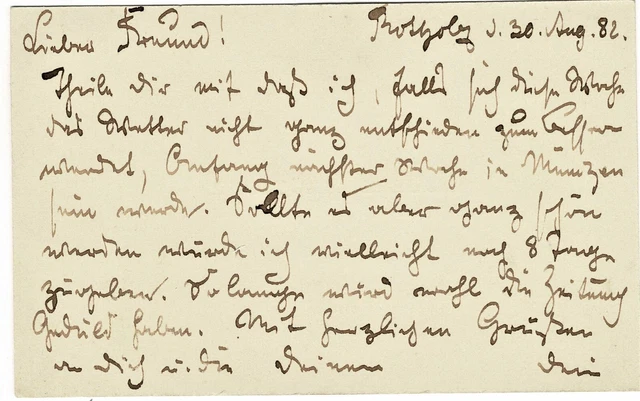 Lieber Freund! Rotholz d. 30. Aug. 82.
Theile dir mit daß ich, falls sich diese Woche
das Wetter nicht ganz entschieden zum Bessern
wendet, Anfang nächster Woche in München
sein werde. Sollte es aber ganz schön
werden würde ich vielleicht noch 8 Tage
zugeben. So lange wird wohl die Zeitung
Geduld haben. Mit herzlichen Grüßen
an dich u. die Deinen Dein